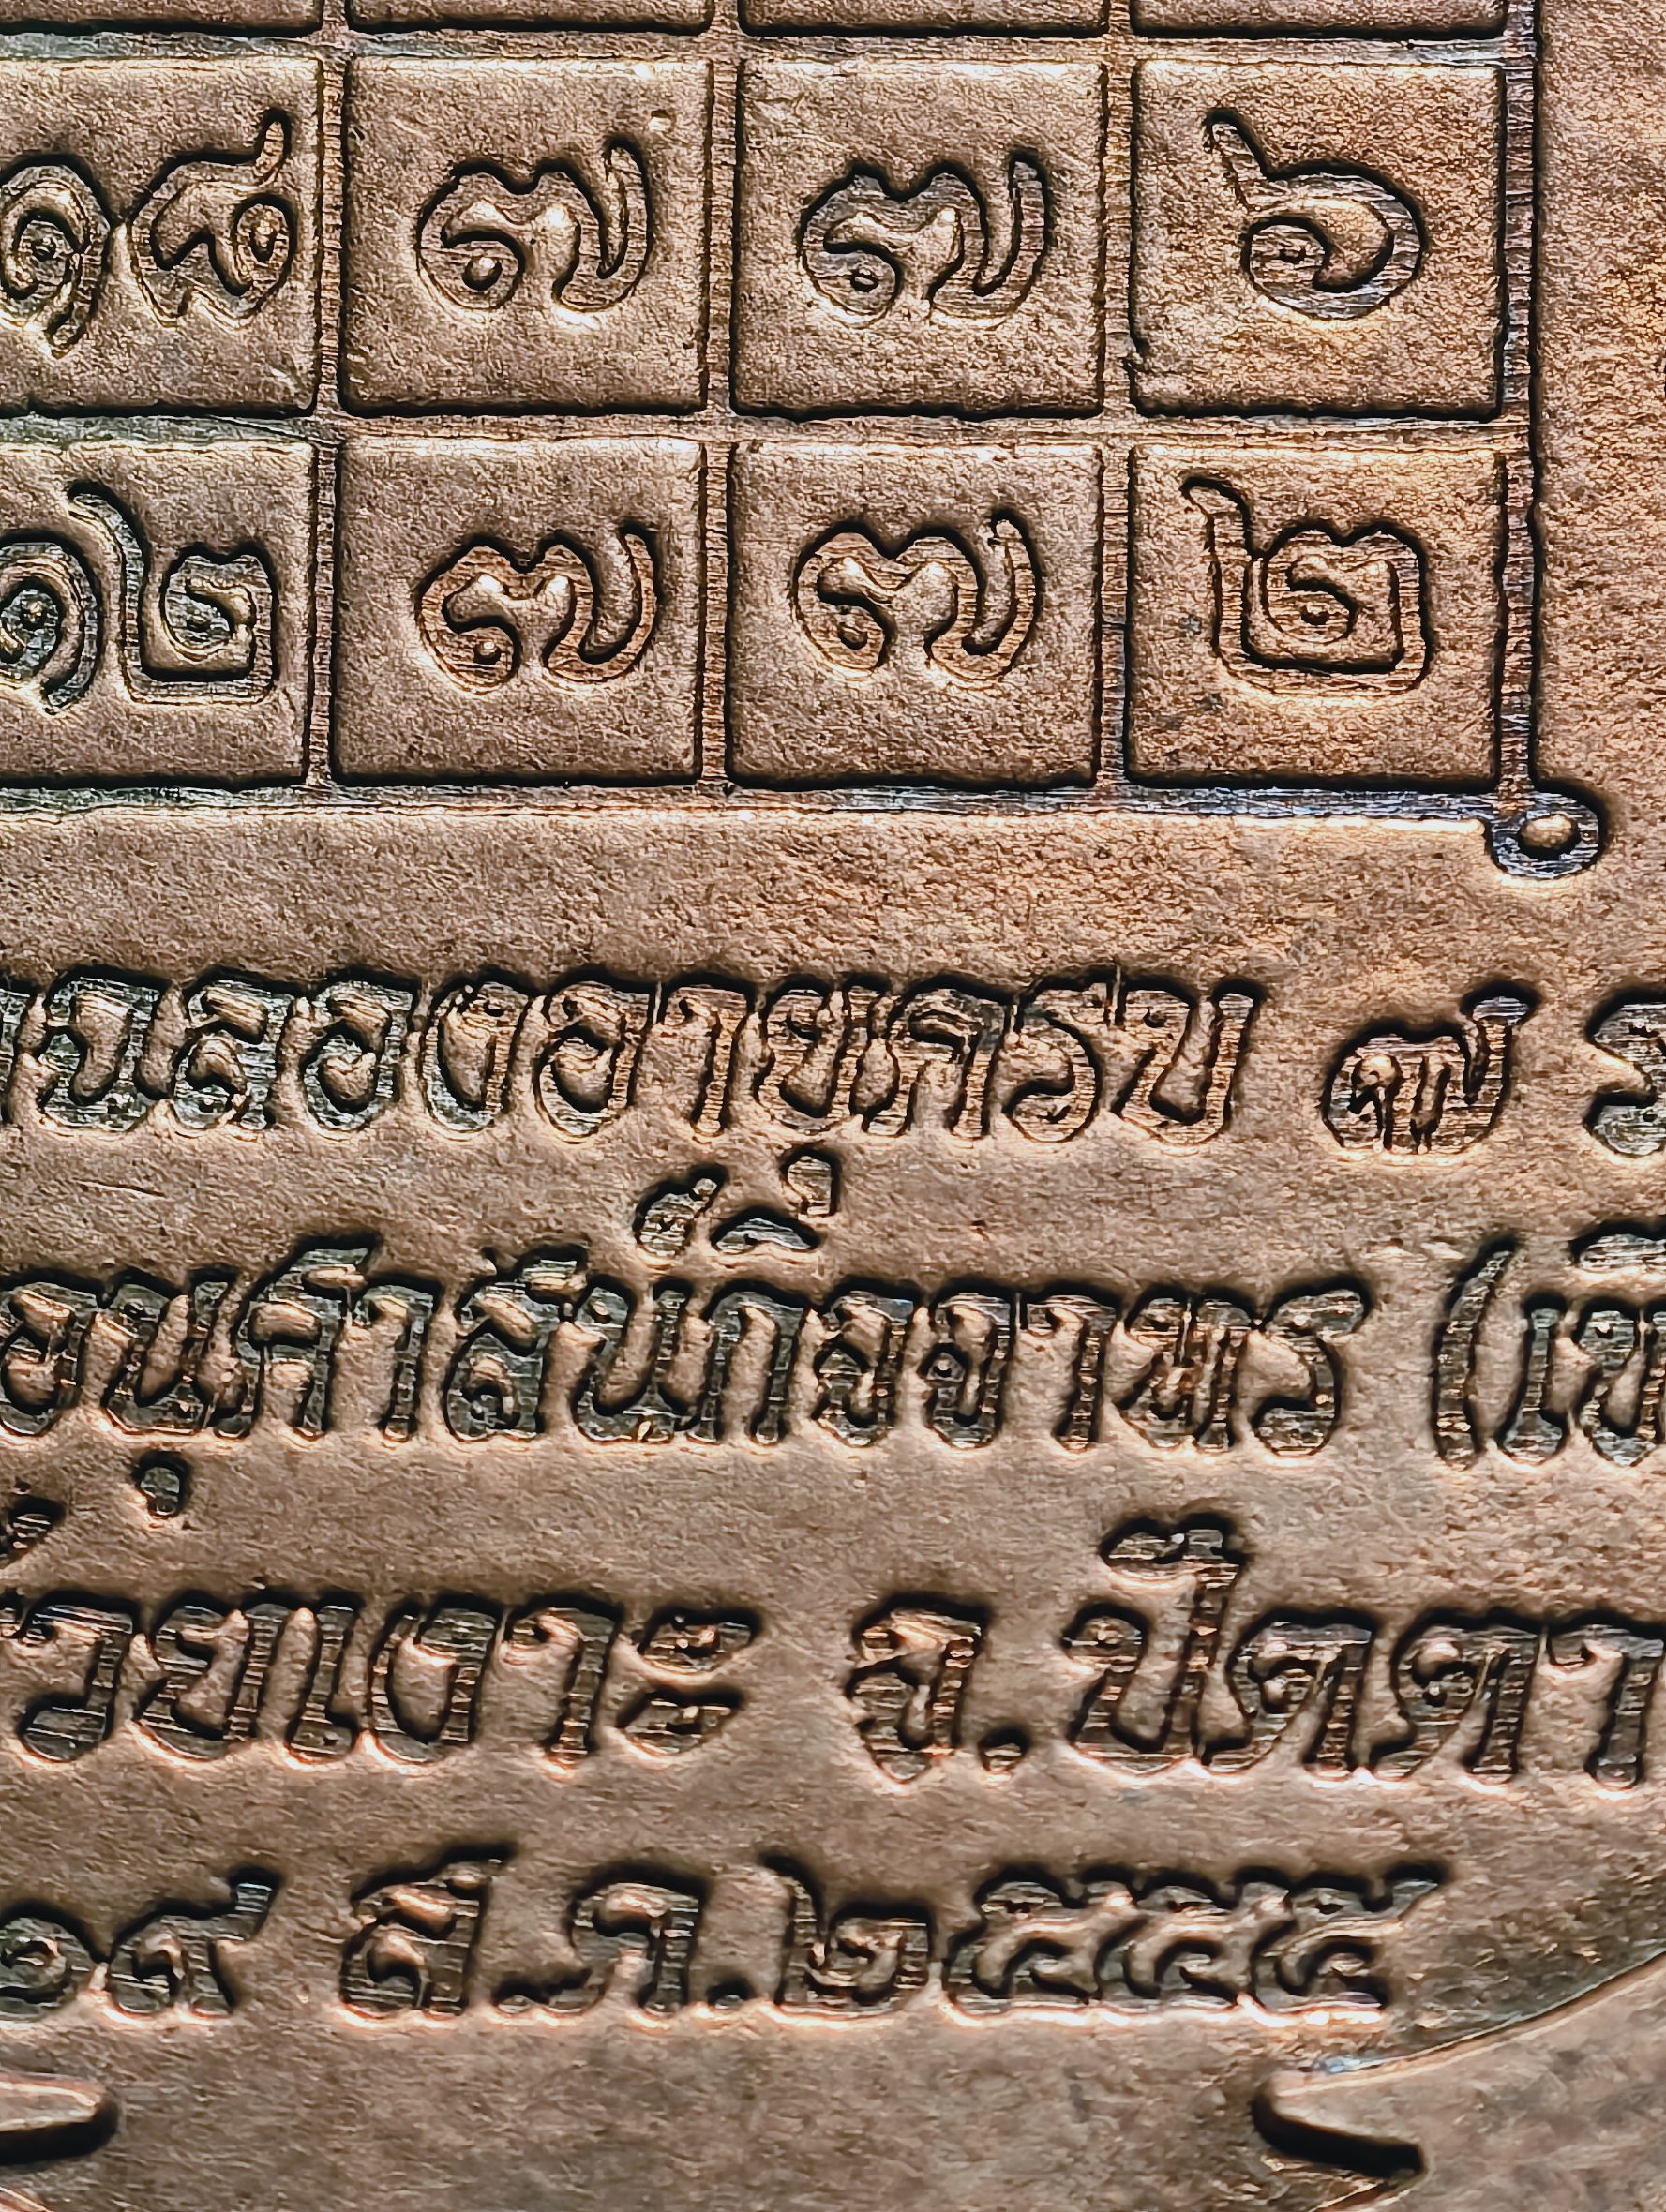 ๑๘ ๗ ๗ ๖
๑๒ ๗ ๗ ๒
ฉลองอายุครบ ๗ ร
อนุศาสน์กิจจาทร (เขี
ห้วยเงาะ จ.ปัตตา
๑๙ ส.ค.๒๕๕๕